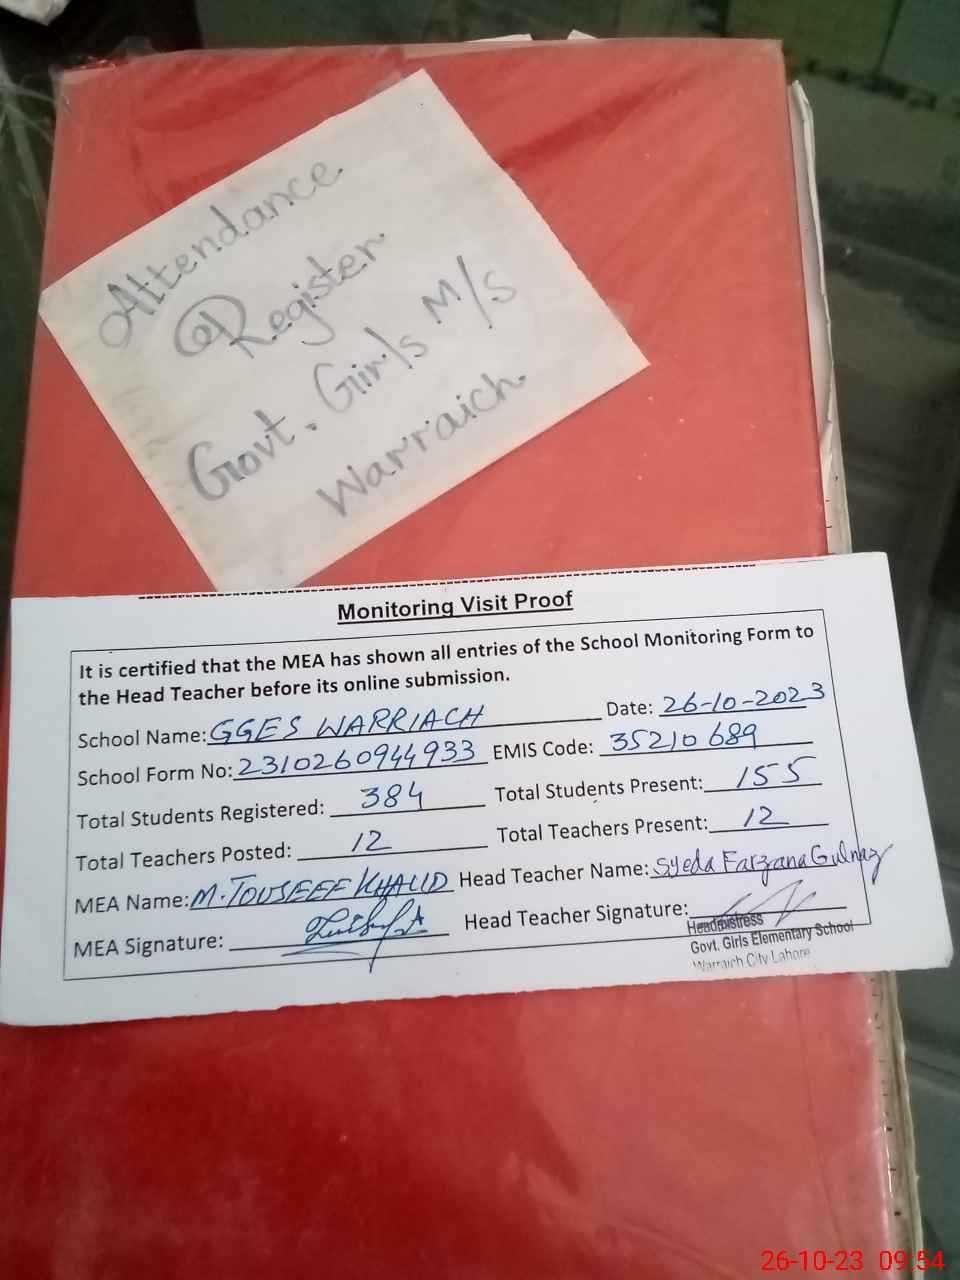 Attendance
@Register
Govt. Girls M/S
Warraich.
Monitoring Visit Proof
It is certified that the MEA has shown all entries of the School Monitoring Form to
the Head Teacher before its online submission.
School Name: GGES WARRIACH Date: 26-10-2023
School Form No: 2310260944933 EMIS Code: 35210689
Total Students Registered: 384 Total Students Present: 155
Total Teachers Posted: 12 Total Teachers Present: 12
MEA Name: M. TOUSEEF KHALID Head Teacher Name: Syeda Farzana Gulnaz
MEA Signature: Head Teacher Signature:
Headmistress
Govt. Girls Elementary School
Warraich City Lahore
26-10-23 09:54